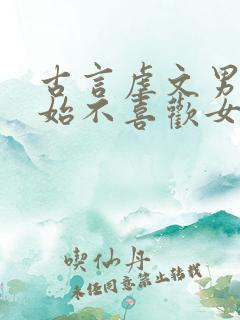 古言虐文男
始不喜歡女
喫仙丹
未经同意禁止转载